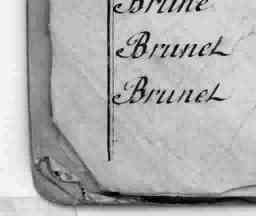 Brune
Brunet
Brunet